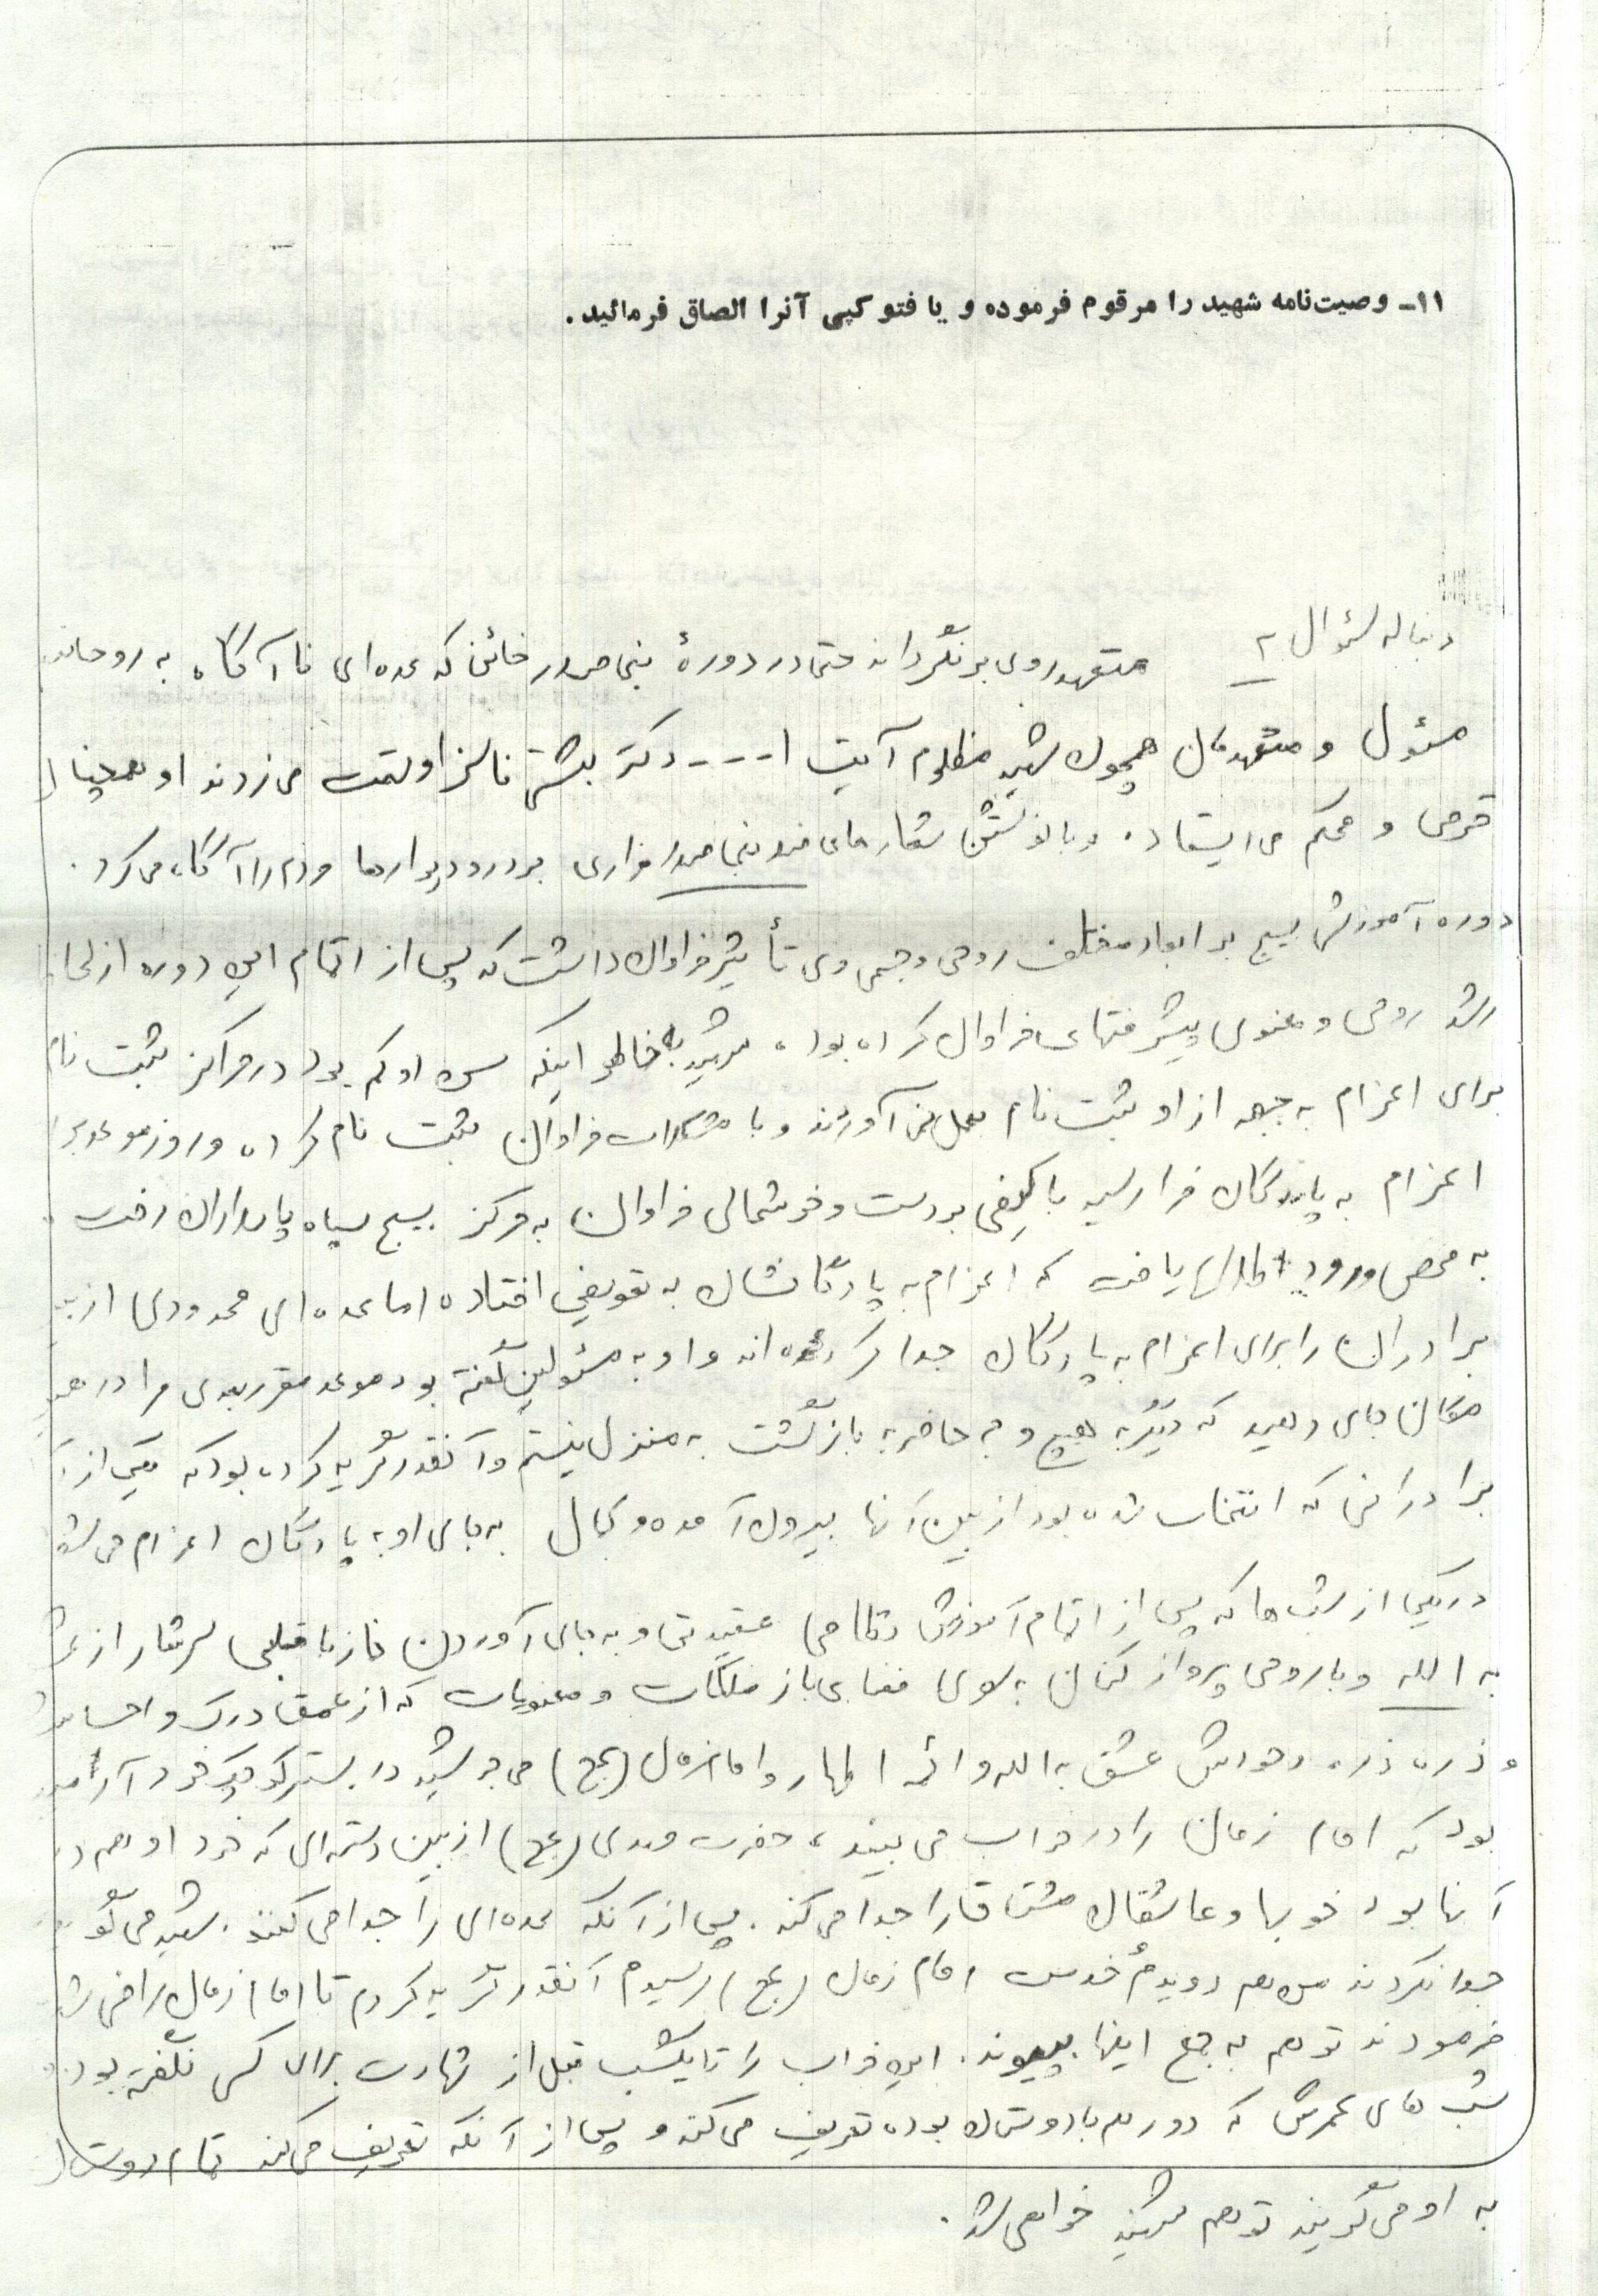 ۱۱- وصیت‌نامه شهید را مرقوم فرموده و یا فتوکپی آنرا الصاق فرمائید.
دنباله سئوال ۲
متعهد روی برنگرداند حتما در دورهٔ بنی صدر خائن که عده‌ای ناآگاه به
مسئول و متعهدمان همچون شهید مظلوم آیت ا---- دکتر بهشتی ناسزا و تهمت می زدند او همچنان
قرص و محکم می ایستاد. و با نوشتن شعارهای ضد بنی صدر بر در و دیوارها مردم را آگاه می کرد.
دوره آموزش بسیج بر ابعاد مختلف روحی و جسمی وی تأثیر فراوان داشت که پس از اتمام این دوره از
رشد روحی و معنوی پیشرفتهای فراوان کرده بود، شهید به خاطر اینکه سن او کم بود در مراکز ثبت نام
برای اعزام به جبهه از او ثبت نام بعمل نمی آوردند و با مشکلات فراوان ثبت نام کرده و روز موعد برای
اعزام به پادگان فرا رسید با کیفی بر دست و خوشحالی فراوان به مرکز بسیج سپاه پاسداران رفت
به محض ورود اطلاع یافت که اعزام به پادگانشان به تعویق افتاده اما عده ای محدودی از
برادران را برای اعزام به پادگان جدا کرده اند و او به مسئولین گفته بود موعد مقرر بعدی مرا در
مکان جای دهید که دیگر به هیچ وجه حاضر به بازگشت به منزل نیستم و آنقدر گریه کرده بود که یکی از
برادرانی که انتخاب شده بود از بین آنها بیرون آمده و کمال به جای او به پادگان اعزام می شود
در یکی از شبها که پس از اتمام آموزش نظامی عقیدتی و به جای آوردن نماز با قلبی سرشار از
به الله و با روحی پرواز کنان به سوی فضایی باز ملکات و معنویات که از عمق درک و احساس
و ذره ذره وجودش عشق به الله و ائمه اطهار و امام زمان (عج) می جوشید در بستر کوچک خود
بود که امام زمان را در خواب می بیند، حضرت مهدی (عج) از بین دسته ای که خود او هم در
آنها بود خوبها و عاشقان مشتاق را جدا می کند. پس از آنکه عده ای را جدا می کنند. شهید می گوید
جدا نکردند من هم دویدم خدمت امام زمان (عج) رسیدم آنقدر گریه کردم تا امام زمان راضی شد
فرمودند تو هم به جمع اینها بپیوند. این خواب را تا یکشب قبل از شهادت برای کسی نگفته بود
شب های عمرش که دور هم با دوستان بوده تعریف می کند و پس از آنکه تعریف می کند تمام دوستان
به او می گویند تو هم شهید خواهی شد.